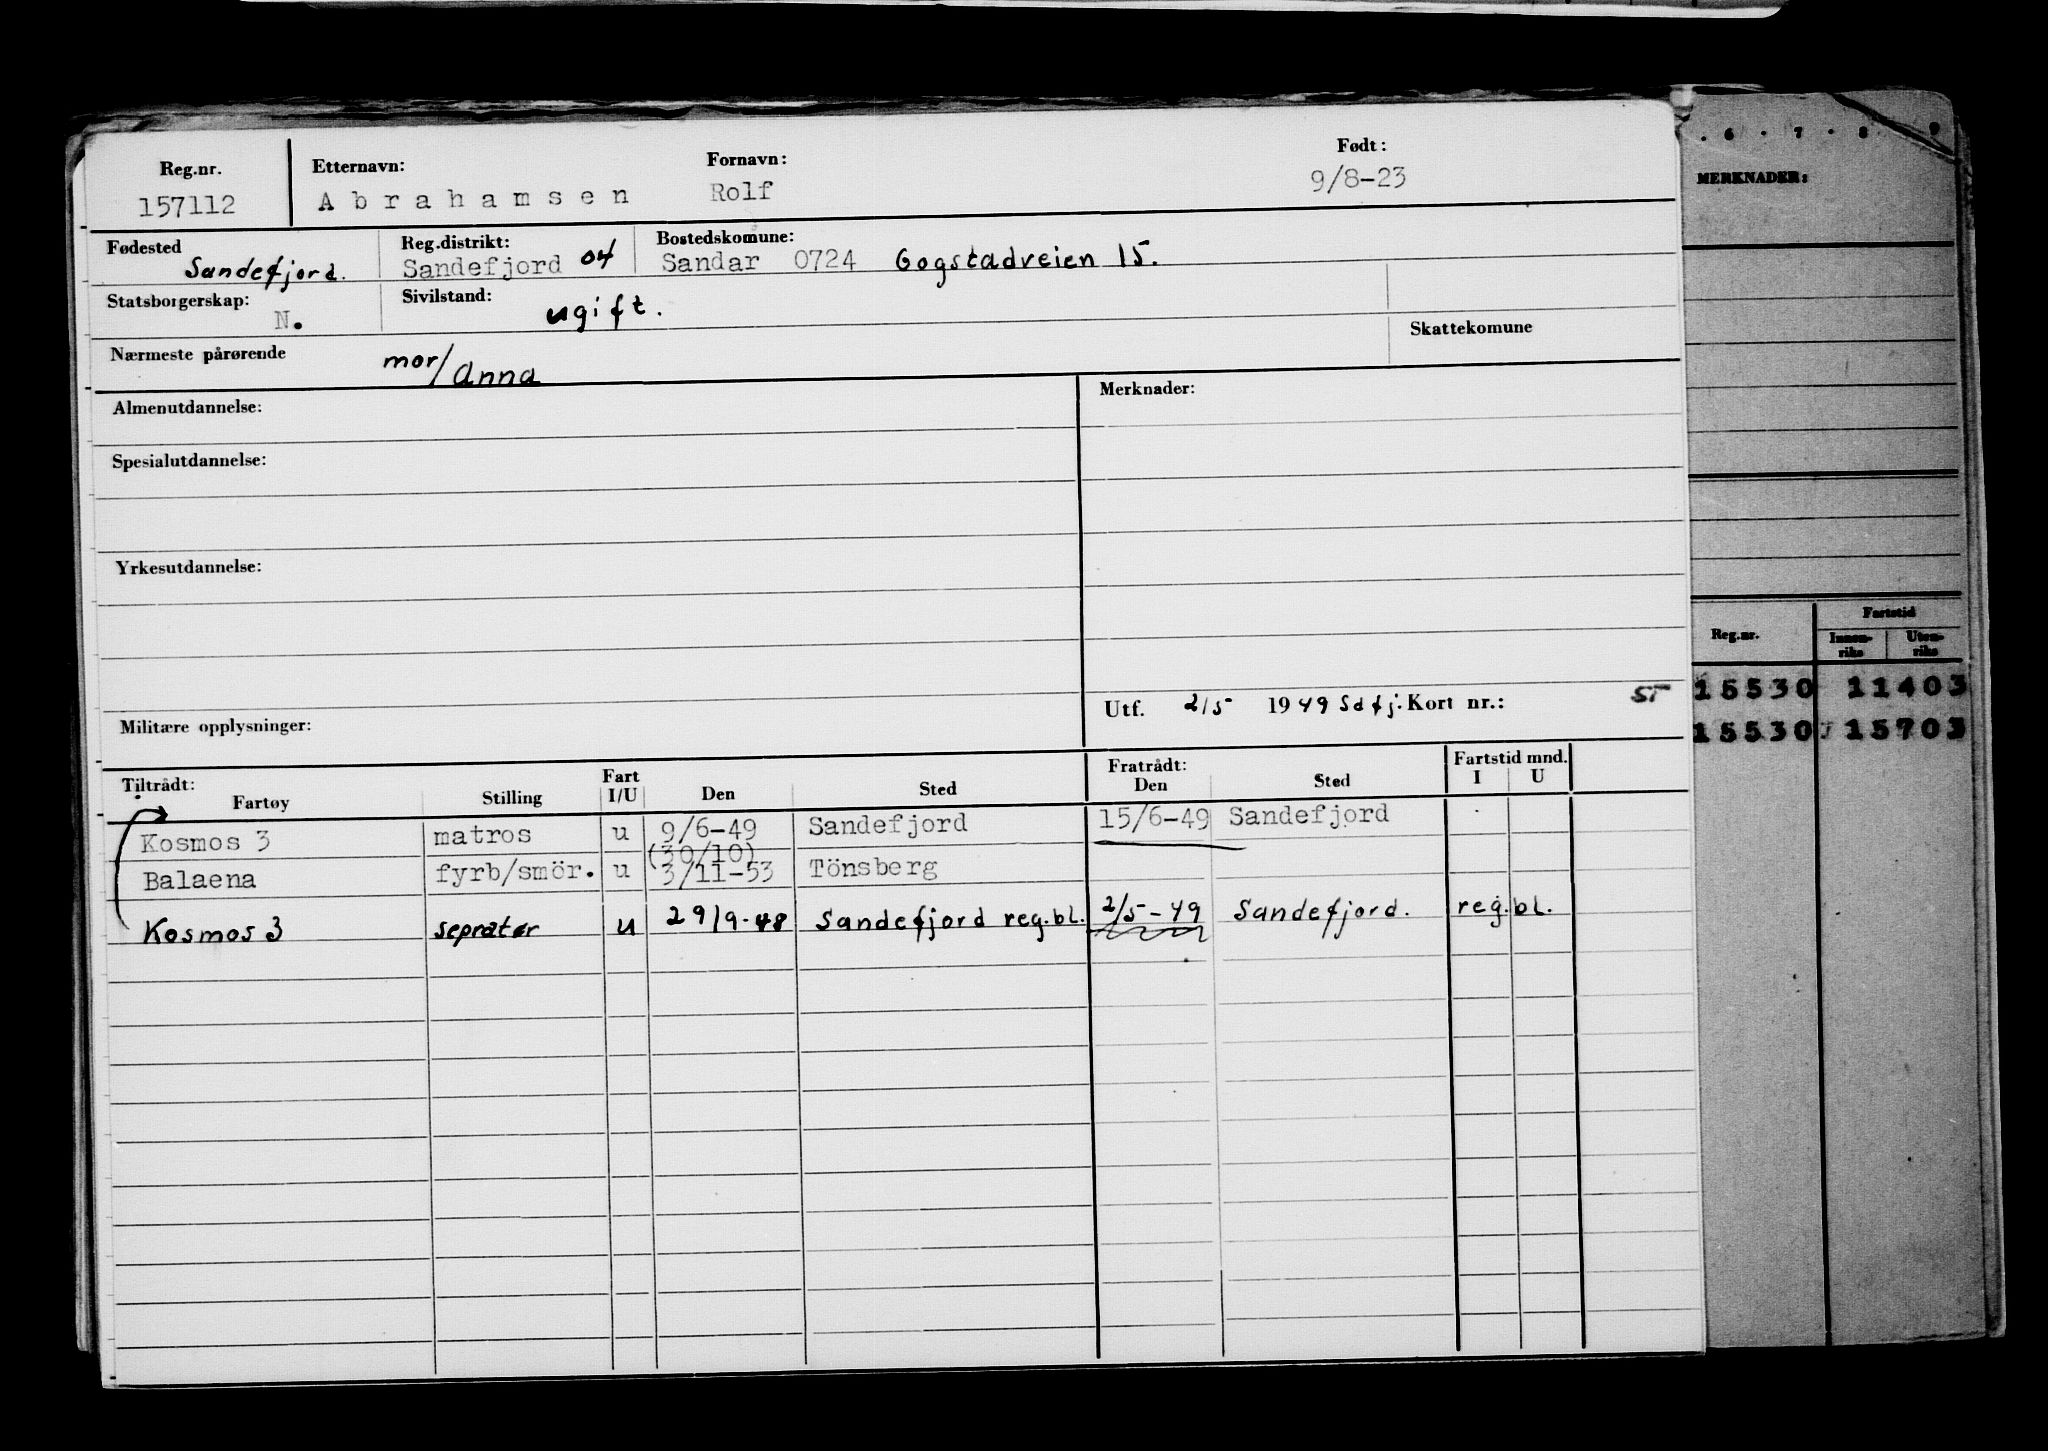 Reg.nr. Etternavn: Fornavn: Født:
157112 Abrahamsen Rolf 9/8-23
Fødested Sandefjord. Reg.distrikt: Sandefjord 04 Bostedskomune: Sandar 0724 Gogstadveien 15.
Statsborgerskap: N. Sivilstand: ugift.
Nærmeste pårørende mor/Anna Skattekomune
Almenutdannelse: Merknader:
Spesialutdannelse:
Yrkesutdannelse:
Militære opplysninger: Utf. 2/5 1949 Sdfj. Kort nr.: ST
Tiltrådt: Fart Fratrådt: Fartstid mnd.
Fartøy Stilling I/U Den Sted Den Sted I U
Kosmos 3 matros u 9/6-49 Sandefjord 15/6-49 Sandefjord
(30/10)
Balaena fyrb/smör. u 3/11-53 Tönsberg
Kosmos 3 sepratør u 29/9-48 Sandefjord reg.bl. 2/5-49 Sandefjord. reg.bl.
. 6 . 7 . 8 . 9
MERKNADER:
Reg.nr. Fartstid
Innen-riks Uten-riks
15530 11403
15530 15703